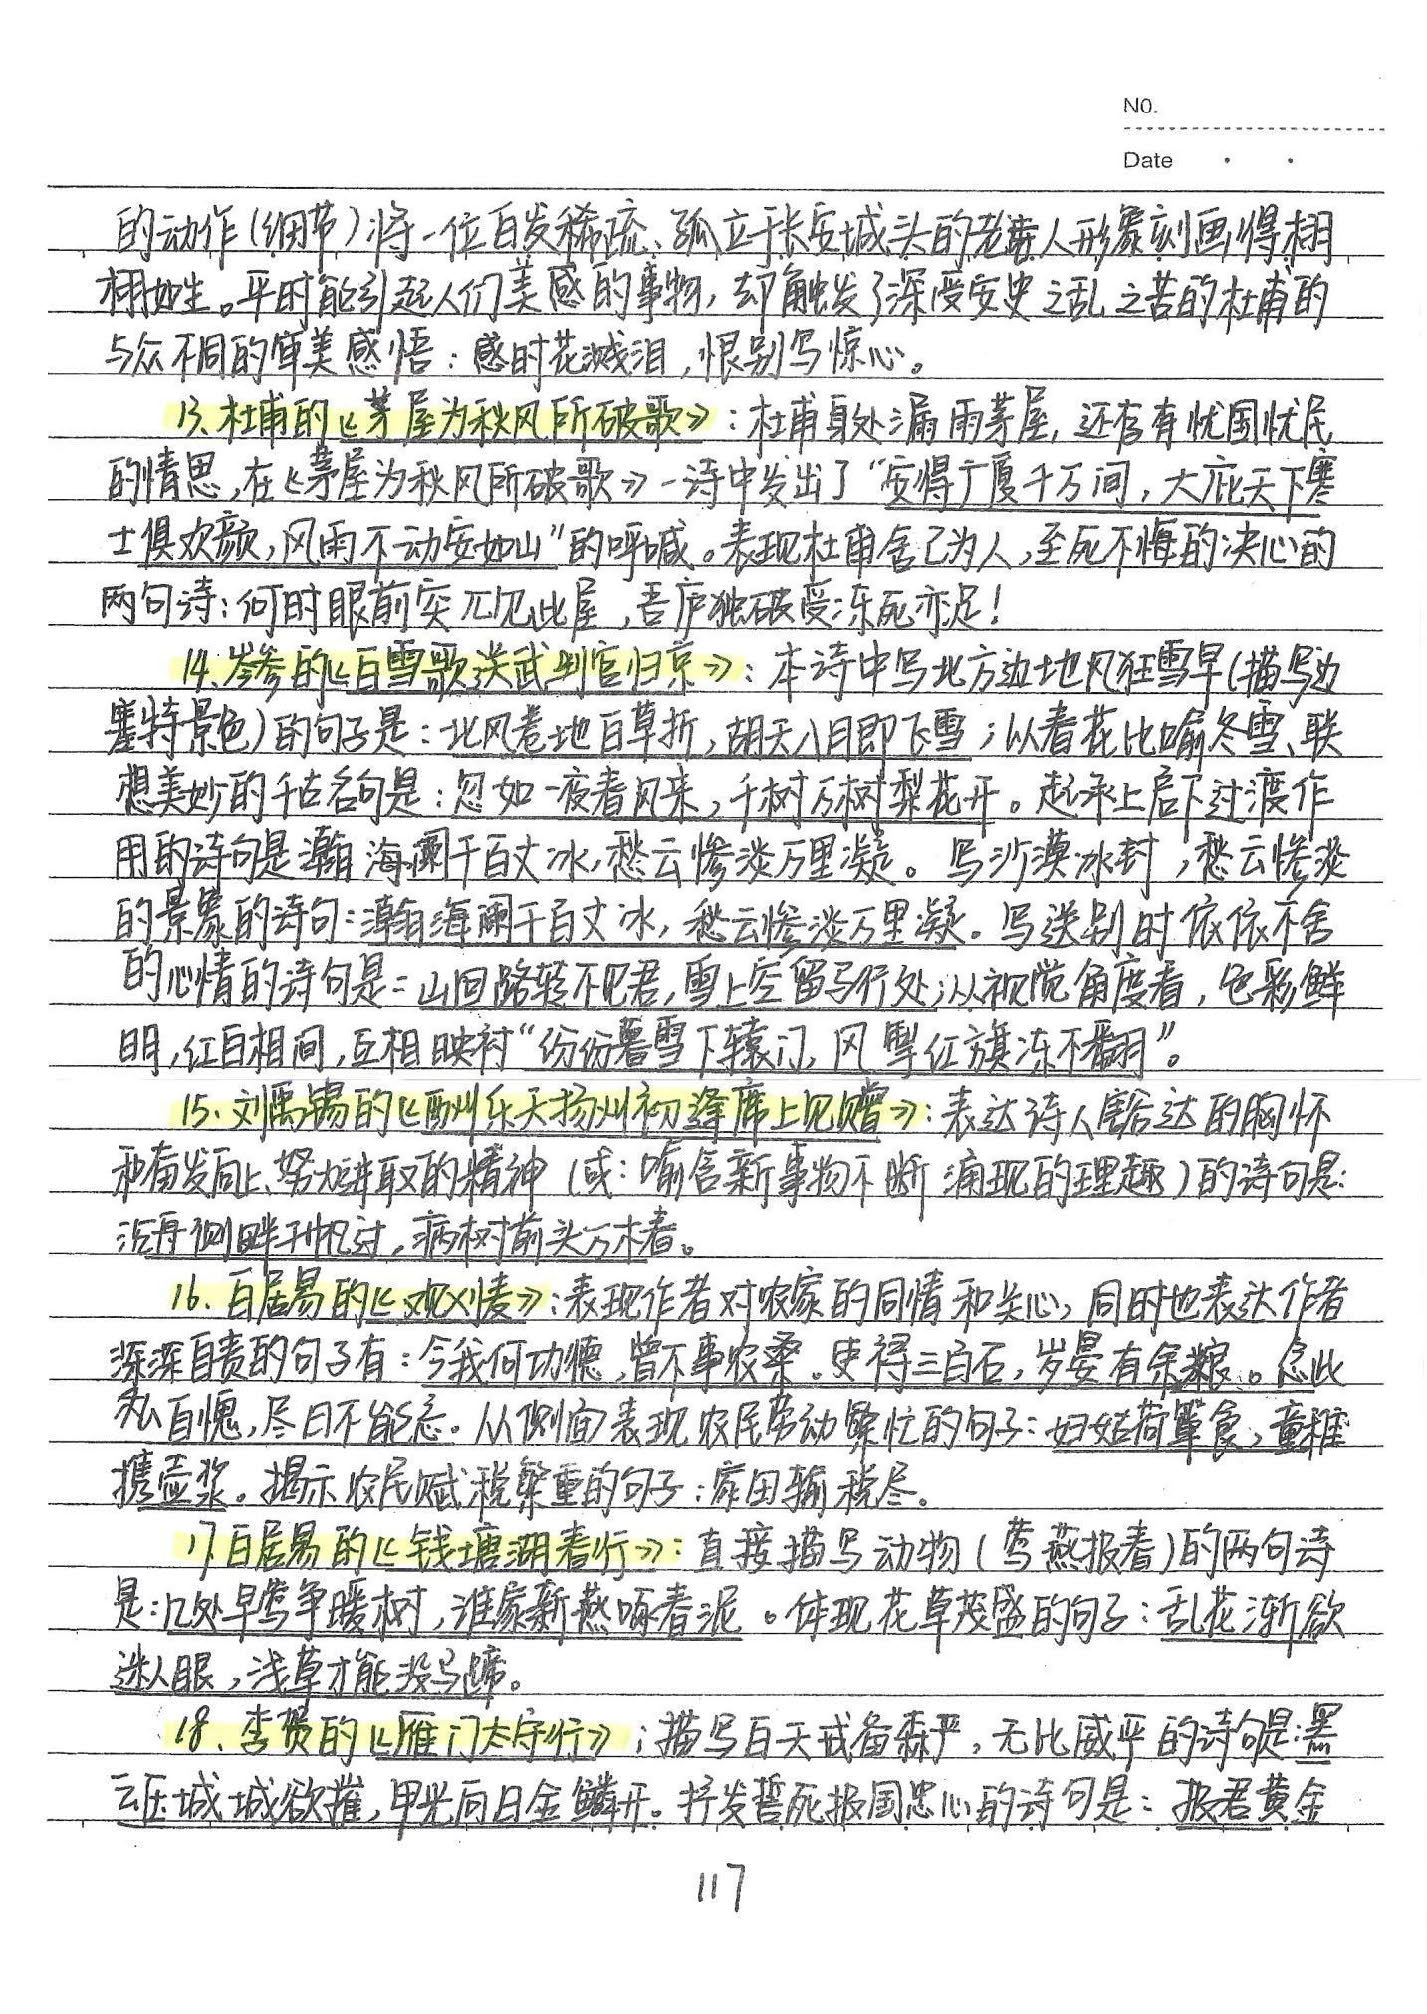 NO.
Date
的动作(细节)将一位白发稀疏、孤立于长安城头的老人形象刻画得栩
栩如生。平时能引起人们美感的事物,却触发了深受安史之乱之苦的杜甫的
与众不同的审美感悟:感时花溅泪,恨别鸟惊心。
13、杜甫的《茅屋为秋风所破歌》:杜甫身处漏雨茅屋,还存有忧国忧民
的情思,在《茅屋为秋风所破歌》一诗中发出了“安得广厦千万间,大庇天下寒
士俱欢颜,风雨不动安如山”的呼喊。表现杜甫舍己为人,至死不悔的决心的
两句诗:何时眼前突兀见此屋,吾庐独破受冻死亦足!
14、岑参的《白雪歌送武判官归京》:本诗中写北方边地风狂雪早(描写边
塞特景色)的句子是:北风卷地百草折,胡天八月即飞雪;以春花比喻冬雪、联
想美妙的千古名句是:忽如一夜春风来,千树万树梨花开。起承上启下过渡作
用的诗句是瀚海阑干百丈冰,愁云惨淡万里凝。写沙漠冰封,愁云惨淡
的景象的诗句:瀚海阑干百丈冰,愁云惨淡万里凝。写送别时依依不舍
的心情的诗句是:山回路转不见君,雪上空留马行处;从视觉角度看,色彩鲜
明,红白相间,互相映衬“份份暮雪下辕门,风掣红旗冻不翻”。
15、刘禹锡的《酬州乐天扬州初逢席上见赠》:表达诗人豁达的胸怀
和奋发向上、努力进取的精神(或:喻含新事物不断涌现的理趣)的诗句是:
沉舟侧畔千帆过,病树前头万木春。
16、白居易的《观刈麦》:表现作者对农家的同情和关心,同时也表达作者
深深自责的句子有:今我何功德,曾不事农桑。吏得三百石,岁晏有余粮。念此
私自愧,尽日不能忘。从侧面表现农民劳动繁忙的句子:妇姑荷箪食,童稚
携壶浆。揭示农民赋税繁重的句子:家田输税尽。
17、白居易的《钱塘湖春行》:直接描写动物(莺燕报春)的两句诗
是:几处早莺争暖树,谁家新燕啄春泥。体现花草茂盛的句子:乱花渐欲
迷人眼,浅草才能没马蹄。
18、李贺的《雁门太守行》:描写白天戒备森严,无比威严的诗句是:黑
云压城城欲摧,甲光向日金鳞开。抒发誓死报国忠心的诗句是:报君黄金
117